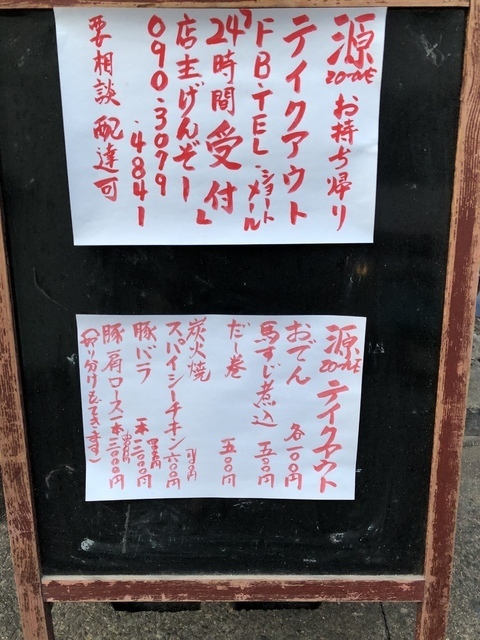 源
ZO-NE
お持ち帰り
テイクアウト
FB・TEL・ショートメール
「24時間受付」
店主げんぞー
090-3079
-4841
要相談 配達可
源
ZO-NE
テイクアウト
おでん 各一00円
馬すじ煮込 五00円
だし巻 五00円
炭火焼
スパイシーチキン 六00円
豚バラ 一本 二000円
豚肩ロース 一本 三000円
(切り分けもできます)